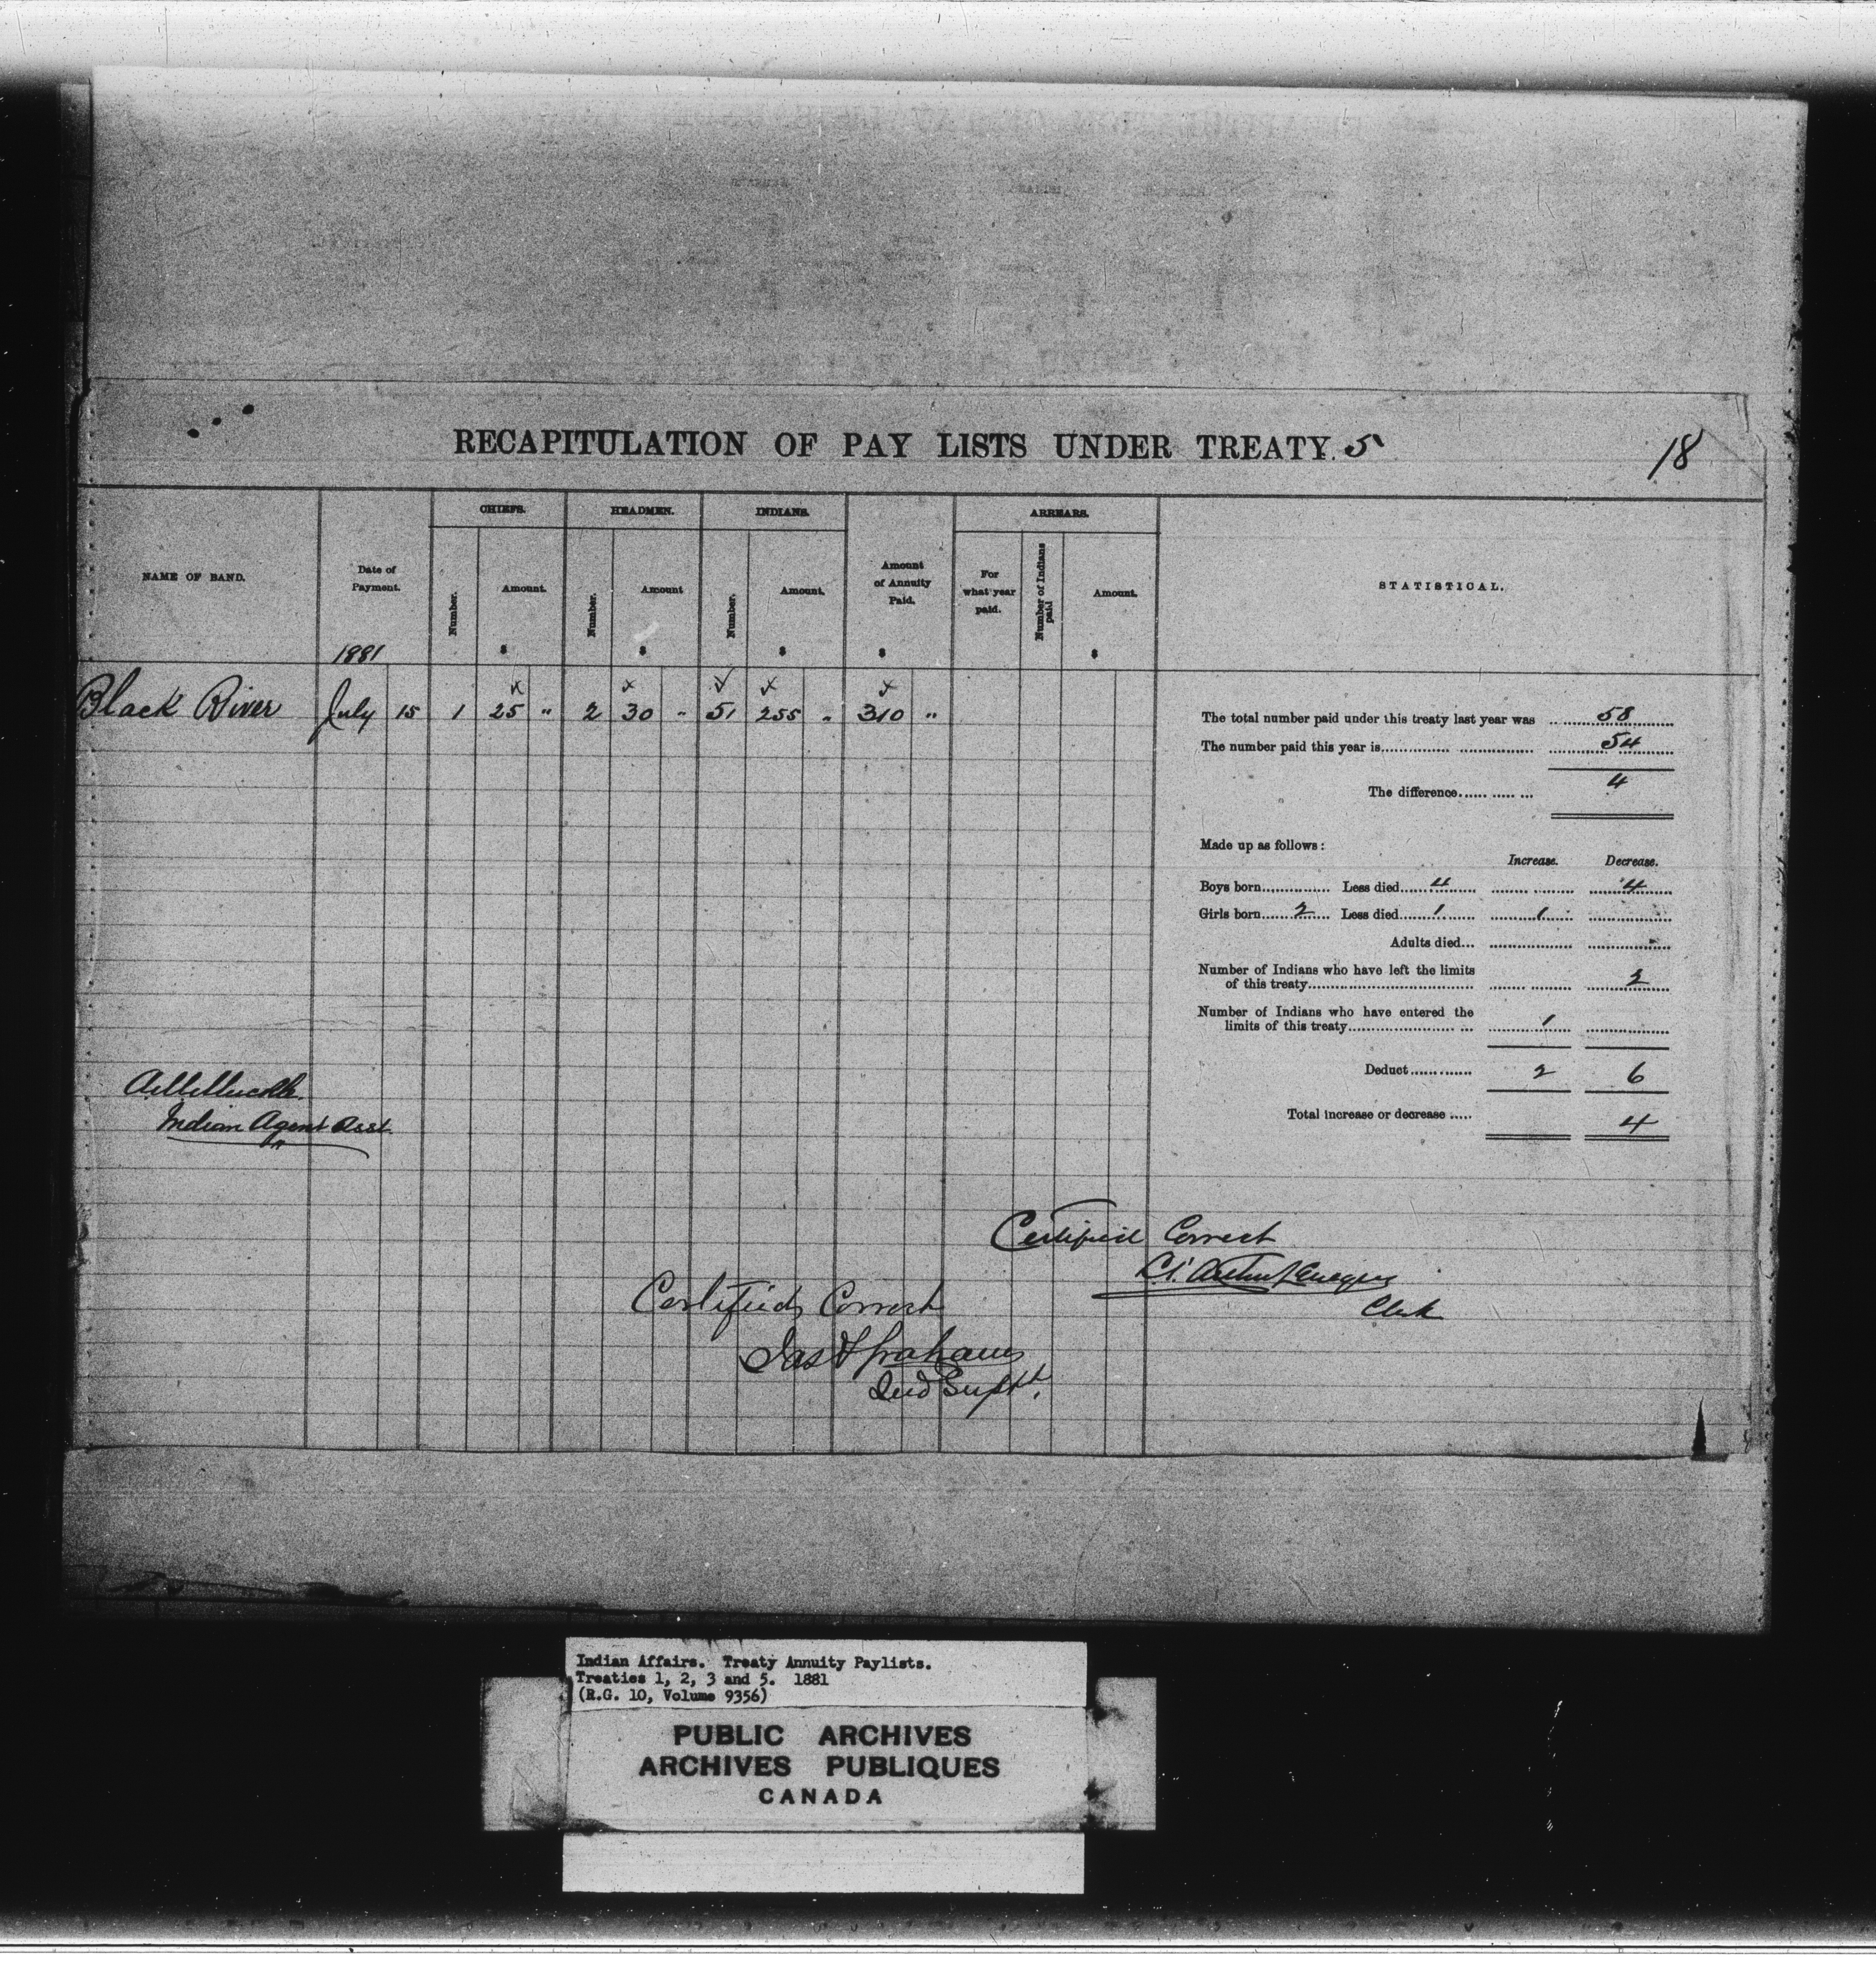 RECAPITULATION OF PAY LISTS UNDER TREATY. 5
18
NAME OF BAND.
Date of Payment.
1881
CHIEFS.
Number.
Amount.
$
HEADMEN.
Number.
Amount
$
INDIANS.
Number.
Amount.
$
Amount of Annuity Paid.
$
ARREARS.
For what year paid.
Number of Indians paid
Amount.
$
STATISTICAL.
Black River July 15 1 25 " 2 30 " 51 255 " 310 "
The total number paid under this treaty last year was 58
The number paid this year is 54
The difference 4
Made up as follows:
Increase. Decrease.
Boys born Less died 4 4
Girls born 2 Less died 1 1
Adults died
Number of Indians who have left the limits
of this treaty 2
Number of Indians who have entered the
limits of this treaty 1
Deduct 2 6
Total increase or decrease 4
Indian Agent Asst.
Certified Correct
Clerk
Certified Correct
Jas F Graham
Ind Suptt.
Indian Affairs. Treaty Annuity Paylists.
Treaties 1, 2, 3 and 5. 1881
(R.G. 10, Volume 9356)
PUBLIC ARCHIVES
ARCHIVES PUBLIQUES
CANADA